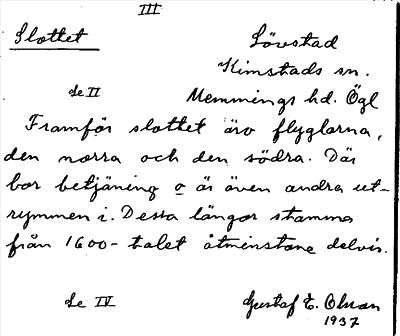 III
Slottet
Lövstad
Kimstads sn.
Se II
Memmings hd. Ögl
Framför slottet äro flyglarna,
den norra och den södra. Där
bor betjäning o är även andra ut-
rymmen i. Dessa längor stamma
från 1600-talet åtminstone delvis.
Se IV
Gustaf E. Olsson
1937